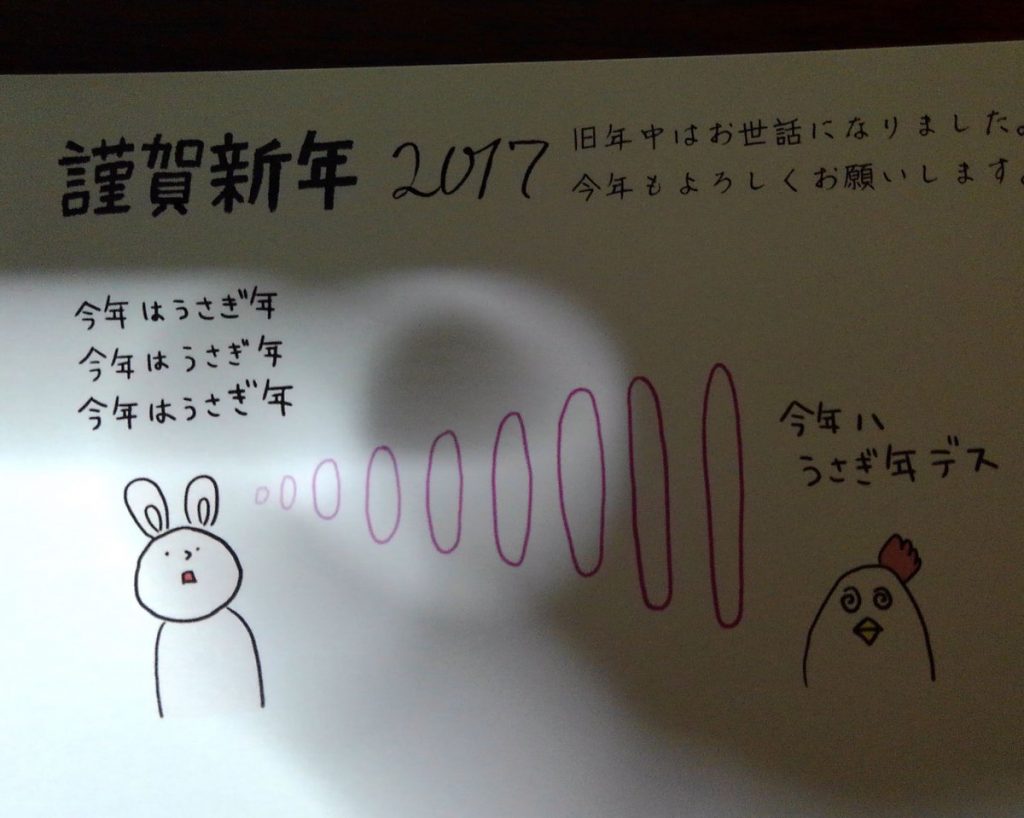 謹賀新年 2017
旧年中はお世話になりました。
今年もよろしくお願いします。
今年はうさぎ年
今年はうさぎ年
今年はうさぎ年
今年ハ
うさぎ年デス